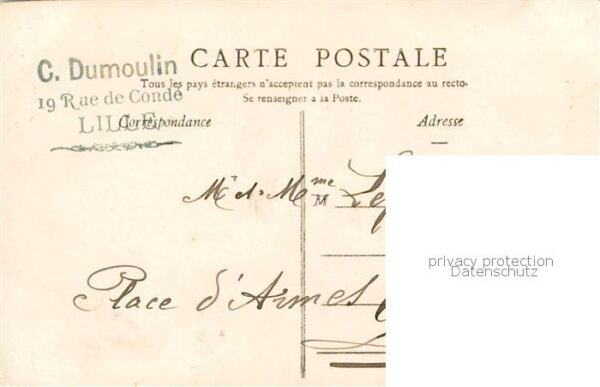 C. Dumoulin
19 Rue de Condé
LILLE
CARTE POSTALE
Tous les pays étrangers n'acceptent pas la correspondance au recto-
Se renseigner a la Poste.
Correspondance Adresse
Mr et Mme
M
Place d'Armes
privacy protection
Datenschutz